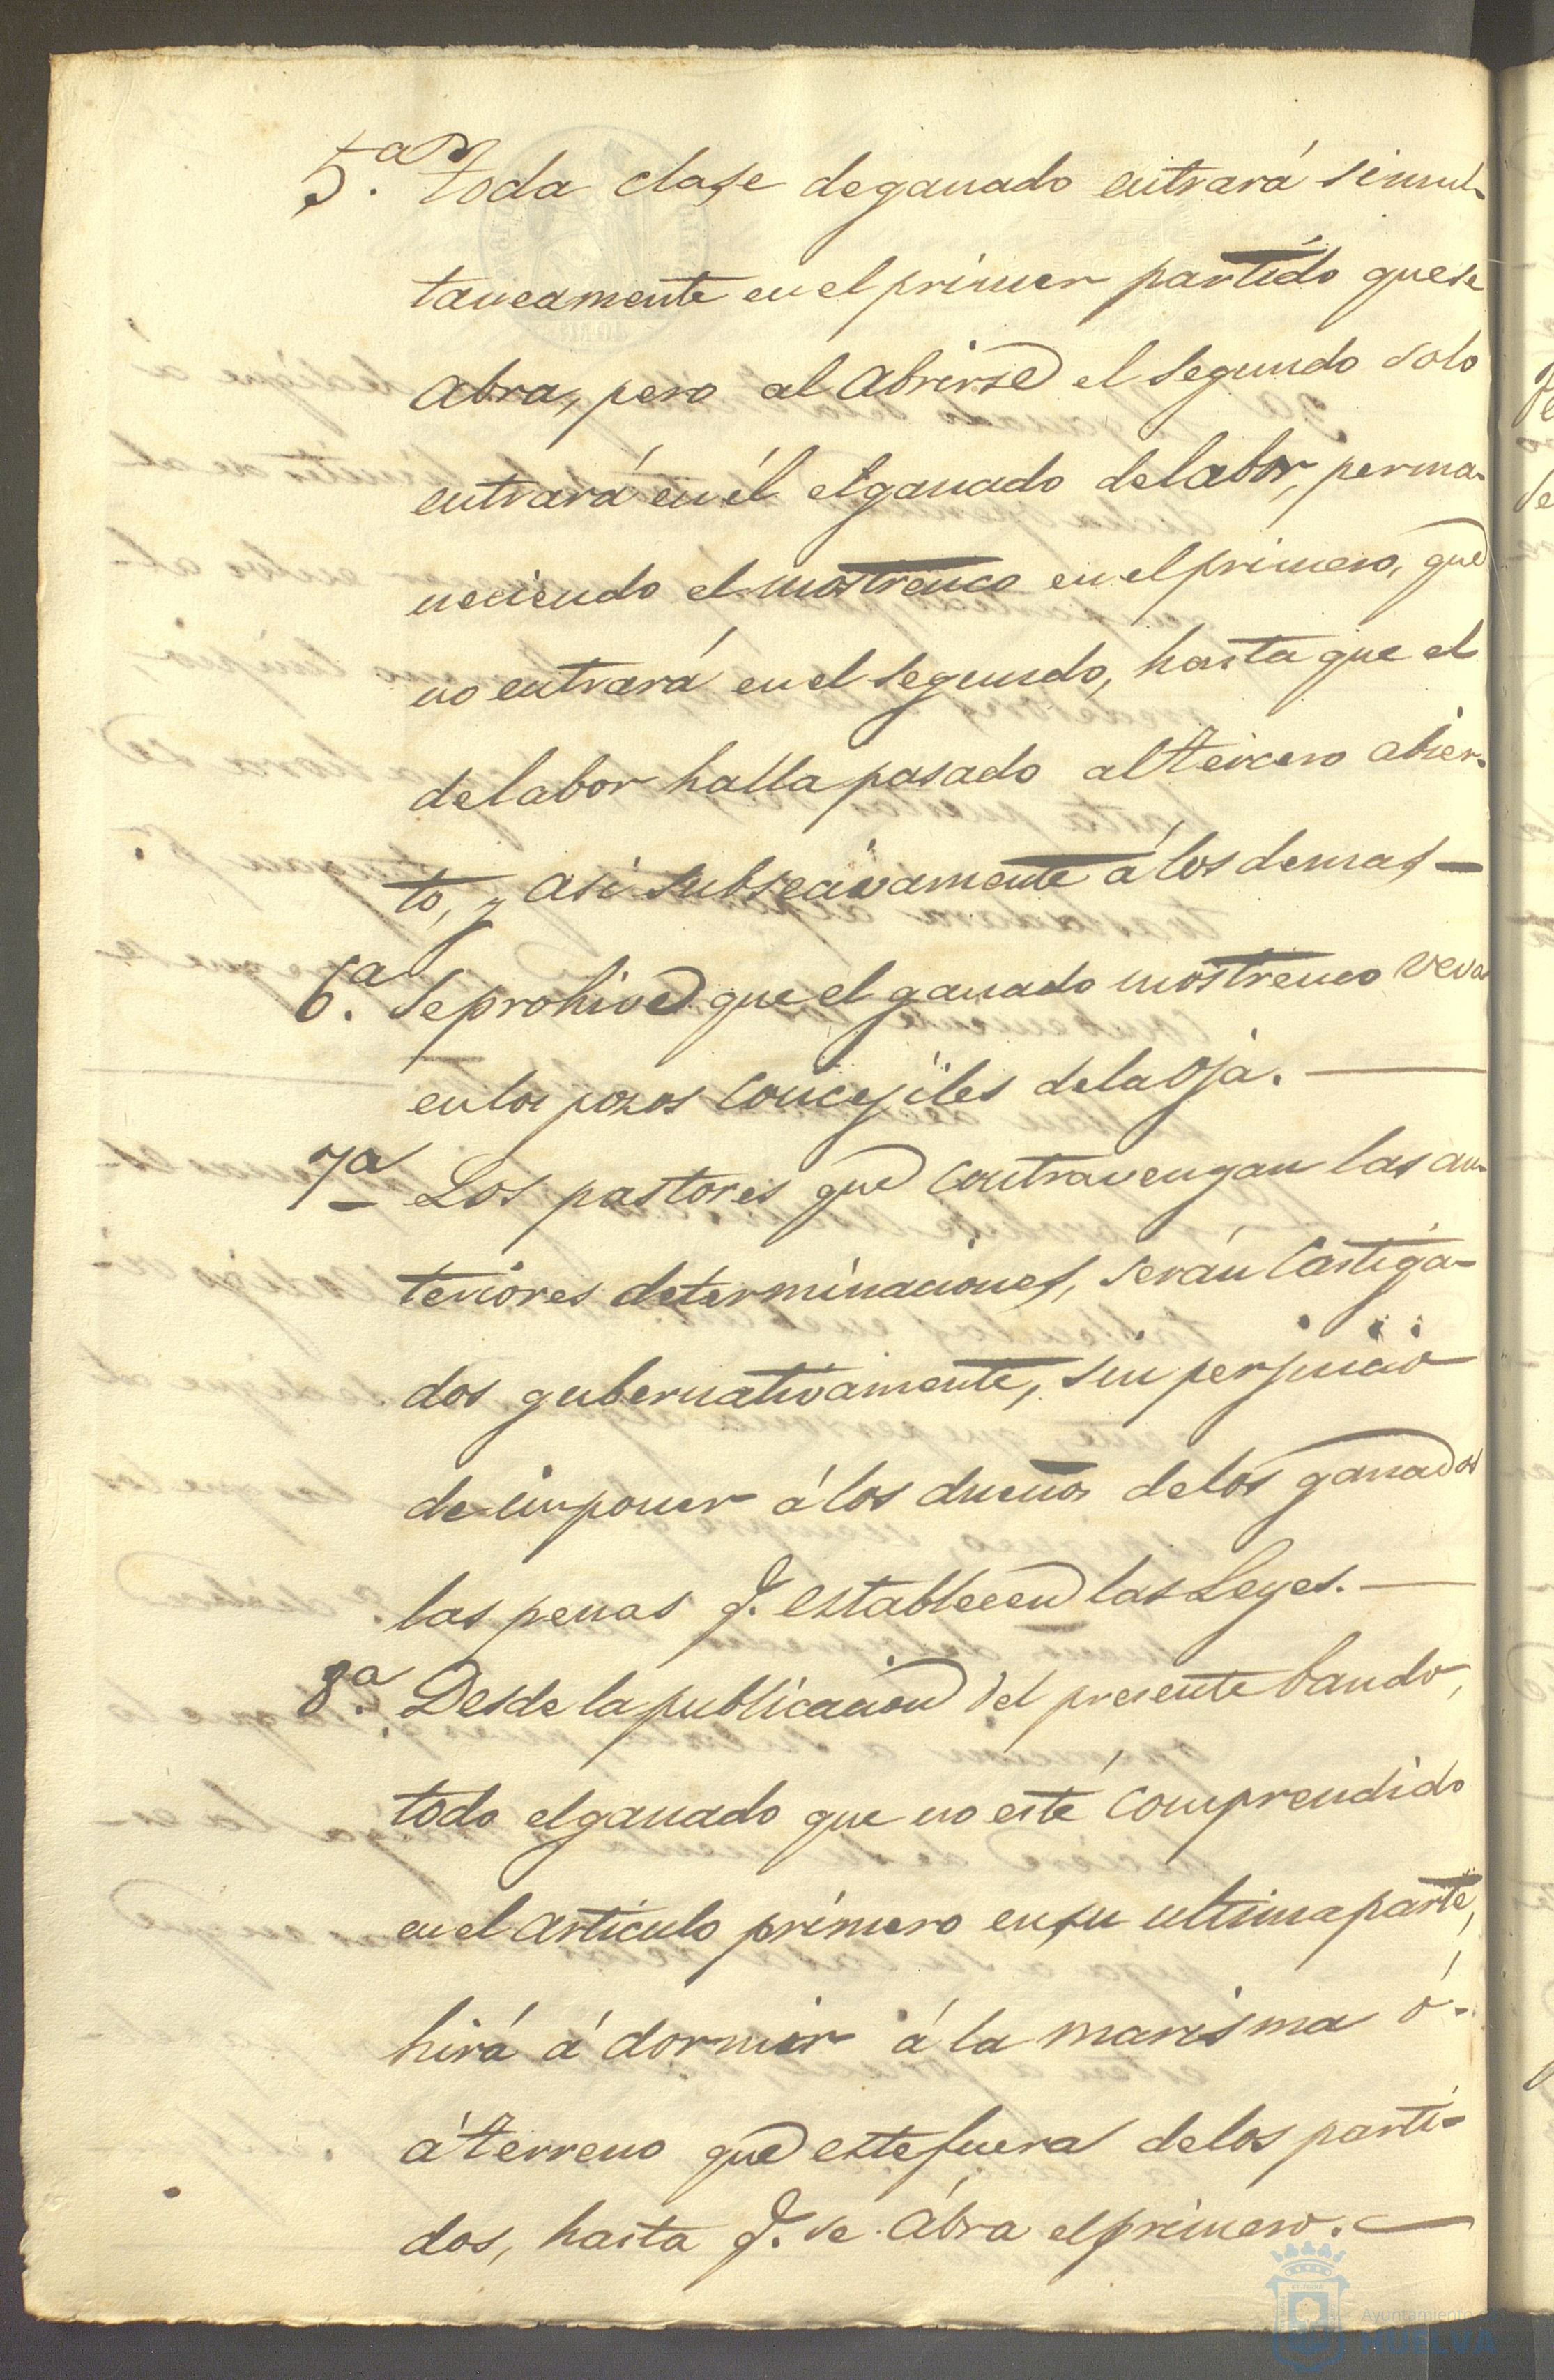 5.ª toda clase de ganado entrará simul-
taneamente en el primer partido que se
abra, pero al abrirse el segundo solo
entrará en él el ganado de labor, perma-
neciendo el mostrenco en el primero, que
no entrará en el segundo, hasta que el
de labor halla pasado al tercero abier-
to, y asi subsecivamente á los demas —
6.ª Se prohive que el ganado mostrenco veva
en los pozos concejiles de la oja. —
7ª Los pastores que contravengan las an-
teriores determinaciones, serán castiga-
dos gubernativamente, sin perjuicio
de imponer á los dueños de los ganados
las penas q. establecen las Leyes. —
8.ª Desde la publicacion del presente bando,
todo el ganado que no esté comprendido
en el artículo primero en su ultima parte,
hirá á dormir á la marisma ó-
á terreno que este fuera de los parti-
dos, hasta q. se abra el primero. —
Ayuntamiento
HUELVA